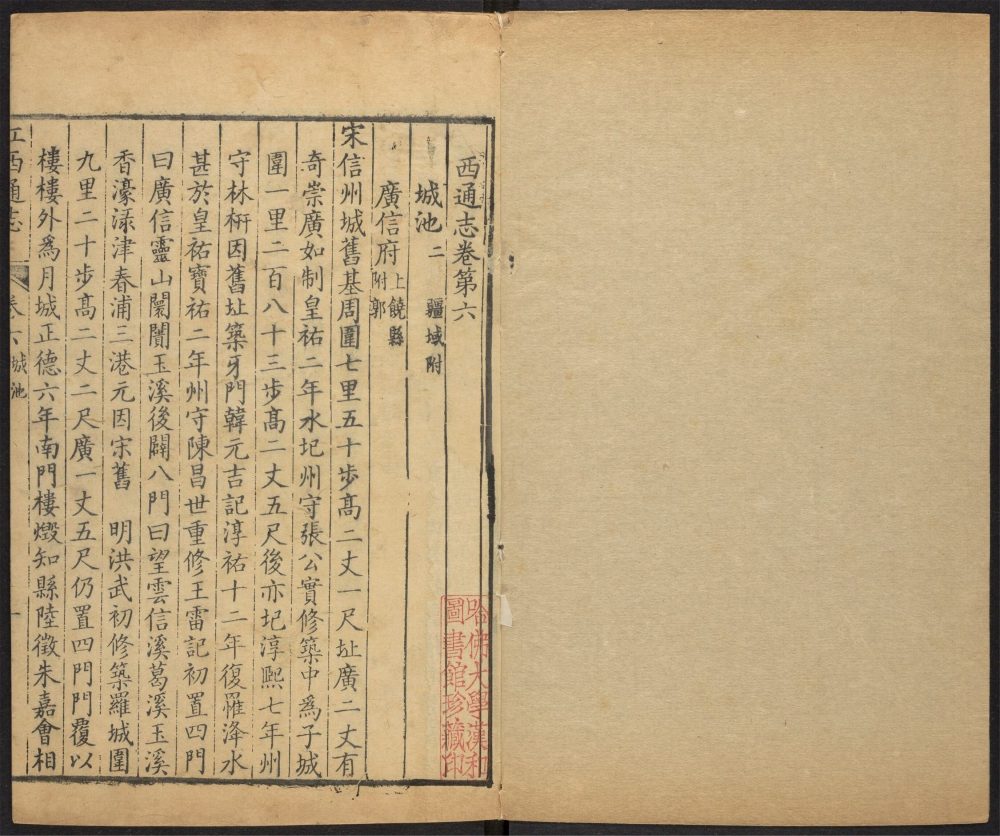 西通志卷第六
城池二 疆域附
廣信府 上饒縣附郭
宋信州城舊基周圍七里五十步高二丈一尺址廣二丈有
奇崇廣如制皇祐二年水圮州守張公實修築中爲子城
圍一里二百八十三步高二丈五尺後亦圮淳熙七年州
守林枅因舊址築牙門韓元吉記淳祐十二年復罹洚水
甚於皇祐寶祐二年州守陳昌世重修王雷記初置四門
曰廣信靈山闤闠玉溪後闢八門曰望雲信溪葛溪玉溪
香濠渌津春浦三港元因宋舊 明洪武初修築羅城圍
九里二十步高二丈二尺廣一丈五尺仍置四門門覆以
樓樓外爲月城正德六年南門樓燬知縣陸徵朱嘉會相
江西通志 卷六 城池 一
哈佛大學漢和
圖書館珍藏印